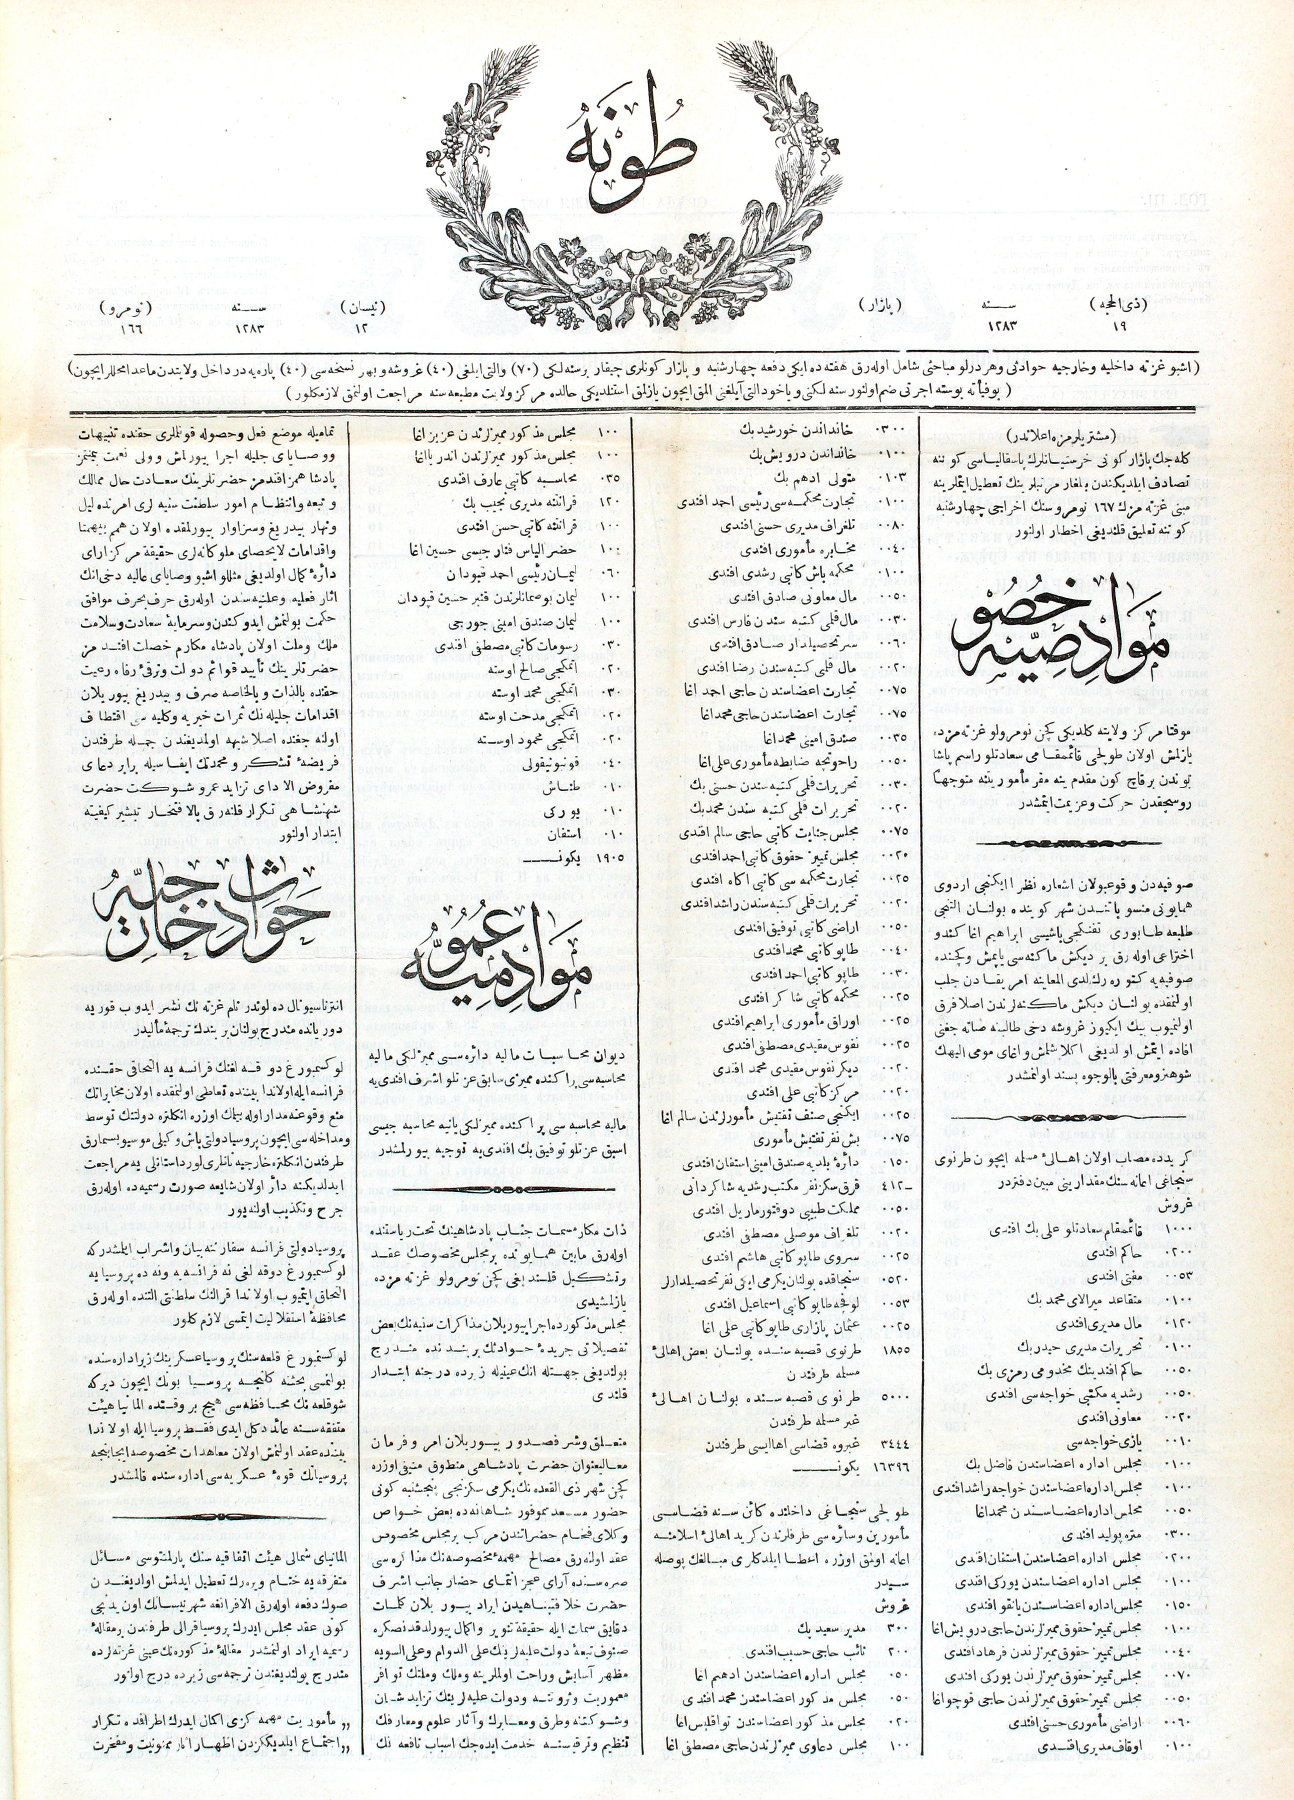 طونه
(ذی الحجه) سنه (پازار) (نیسان) سنه (نومرو)
١٩ ١٢٨٣ ١٢ ١٢٨٣ ١٦٦
(اشبو غزته داخلیه و خارجیه حوادثی وهر درلو مباحثی شامل اوله رق هفته ده ایکی دفعه چهارشنبه و پازار کونلری چیقار برسنه لکی (٧٠) والتی ایلغی (٤٠) غروشه و بهر نسخه سی (٤٠) پاره یه در داخل ولایتدن ماعدا محللر ایچون)
(بوفیأته پوسته اجرتی ضم اولنور سنه لکی و یاخود التی آیلغنی المق ایچون یازلق استنلدیکی حالده مرکز ولایت مطبعه سنه مراجعت اولنمق لازمکلور)
(مشتریلرمزه اعلاندر)
کله جك پازار کونی خرستیانلرك پاسقالیاسی کوننه
تصادف ایلدیکندن بلغار مرتبلرینك تعطیل ایتملرینه
مبنی غزته مزك ١٦٧ نومروسنك اخراجی چهارشنبه
کوننه تعلیق قلندیغی اخطار اولنور
مواد خصوصیه
موقتا مرکز ولایته کلدیکی کچن نومرولو غزته مزده
یازلمش اولان طولچی قائممقامی سعادتلو راسم پاشا
بوندن برقاچ کون مقدم ینه مقر مأموریتنه متوجهاً
روسچقدن حرکت وعزیمت ایتمشدر
صوفیه دن وقوعبولان اشعاره نظرا ایکنجی اردوی
همایونی منسوباتندن شهرکوینده بولنان التنجی
طلیعه طابوری تفنکجی باشیسی ابراهیم اغا کندو
اختراعی اوله رق بر دیکش ماکنه سی یاپمش وکچنده
صوفیه یه کتوره رك لدی المعاینه امریقادن جلب
اولنمقده بولنان دیکش ماکنه لرندن اصلا فرق
اولنمیوب بیك ایکیوز غروشه دخی طالبنه صاته جغنی
افاده ایتمش اولدیغی اکلاشلمش واغای مومی الیهك
شو هنرومعرفتی بالوجوه پسند اولنمشدر
کریدده مصاب اولان اهالئ مسلمه ایچون طرنوی
سنجاغی اعانه سنك مقدارینی مبین دفتردر
غروش
١٠٠٠ قائممقام سعادتلو علی بك افندی
٠٢٠٠ حاکم افندی
٠٠٥٣ مفتی افندی
٠١٠٠ متقاعد میرالای محمد بك
٠١٢٠ مال مدیری افندی
٠١٠٠ تحریرات مدیری حیدر بك
٠٠٥٠ حاکم افندینك مخدومی رمزی بك
٠٠٥٠ رشدیه مکتبی خواجه سی افندی
٠٠٢٠ معاونی افندی
٠٠١٠ یازی خواجه سی
٠١٠٠ مجلس اداره اعضاسندن فاضل بك
٠١٠٠ مجلس اداره اعضاسندن خواجه راشد افندی
٠٠٥٠ مجلس اداره اعضاسندن محمد اغا
٠٣٠٠ متره پولید افندی
٠٢٠٠ مجلس اداره اعضاسندن استفان افندی
٠١٠٠ مجلس اداره اعضاسندن یورکی افندی
٠١٥٠ مجلس اداره اعضاسندن یانقو افندی
٠١٠٠ مجلس تمییز حقوق ممیزلرندن حاجی درویش اغا
٠٠٤٠ مجلس تمییز حقوق ممیزلرندن فرهاد افندی
٠٠٧٠ مجلس تمییز حقوق ممیزلرندن یورکی افندی
٠٠٥٠ مجلس تمییز حقوق ممیزلرندن حاجی قوچو اغا
٠٠٦٠ اراضی مأموری حسنی افندی
٠١٠٠ اوقاف مدیری افندی
٠٣٠٠ خانداندن خورشید بك
٠١٠٠ خانداندن درویش بك
٠١٠٣ متولی ادهم بك
٠١٠٠ تجارت محکمه سی رئیسی احمد افندی
٠٠٨٠ تلغراف مدیری حسنی افندی
٠٠٤٠ مخابره مأموری افندی
٠١٠٠ محکمه باش کاتبی رشدی افندی
٠٠٥٠ مال معاونی صادق افندی
٠٠٣٠ مال قلمی کتبه سندن فارس افندی
٠٠٦٠ سرتحصیلدار صادق افندی
٠٠٢٠ مال قلمی کتبه سندن رضا افندی
٠٠٧٥ تجارت اعضاسندن حاجی احمد اغا
٠٠٧٥ تجارت اعضاسندن حاجی محمد اغا
٠٠٣٥ صندق امینی محمد اغا
٠٠٥٠ راحوتچه ضابطه مأموری علی اغا
٠٠٣٠ تحریرات قلمی کتبه سندن حسنی بك
٠٠٢٠ تحریرات قلمی کتبه سندن محمد بك
٠٠٧٥ مجلس جنایت کاتبی حاجی سالم افندی
٠٠٢٥ مجلس تمییز حقوق کاتبی احمد افندی
٠٠٢٥ تجارت محکمه سی کاتبی اکاه افندی
٠٠٢٠ تحریرات قلمی کتبه سندن راشد افندی
٠٠٥٠ اراضی کاتبی توفیق افندی
٠٠٤٠ طاپو کاتبی محمد افندی
٠٠٣٠ طاپو کاتبی احمد افندی
٠٠٢٥ محکمه کاتبی شاکر افندی
٠٠٢٥ اوراق مأموری ابراهیم افندی
٠٠٢٥ نفوس مقیدی مصطفی افندی
٠٠٢٠ دیکر نفوس مقیدی محمد افندی
٠٠٢٠ مرکز کاتبی علی افندی
٠٠٢٥ ایکنجی صنف تفتیش مأمورلرندن سالم اغا
٠٠٧٥ بش نفر تفتیش مأموری
٠١٥٠ دائرۀ بلدیه صندق امینی استفان افندی
٤١٢ قرق سکز نفر مکتب رشدیه شاکردانی
٠٠٥٠ مملکت طبیبی دوقتور ماریل افندی
٠٠٢٠ تلغراف موصلی مصطفی افندی
٠٠٢٥ سروی طاپو کاتبی هاشم افندی
٠٥٢٠ سنجاقده بولنان یکرمی ایکی نفر تحصیلدارلر
٠٠٥٣ لوفچه طاپو کاتبی اسماعیل افندی
٠٠٢٥ عثمان پازاری طاپو کاتبی علی اغا
١٨٥٥ طرنوی قصبه سنده بولنان بعض اهالئ
مسلمه طرفندن
٥٠٠٠ طرنوی قصبه سنده بولنان اهالئ
غیر مسلمه طرفندن
٣٤٤٤ غبروه قضاسی اهالیسی طرفندن
١٦٣٩٦ یکون
طولچی سنجاغی داخلنده کائن سنه قضاسی
مأمورین وسائره سی طرفلرندن کرید اهالئ اسلامنه
اعانه اولنق اوزره اعطا ایلدکلری مبالغك پوصله
سیدر
غروش
٣٠٠ مدیر سعید بك
٢٠٠ نائب حاجی حسیب افندی
٠٥٠ مجلس اداره اعضاسندن ادهم اغا
٠٥٠ مجلس مذکور اعضاسندن محمد افندی
٠٢٠ مجلس مذکور اعضاسندن نواقلیس اغا
١٠٠ مجلس دعاوی ممیزلرندن حاجی مصطفی اغا
١٠٠ مجلس مذکور ممیزلرندن عزیز اغا
١٠٠ مجلس مذکور ممیزلرندن اندریا اغا
٠٣٥ محاسبه کاتبی عارف افندی
١٢٠ قرانتنه مدیری نجیب بك
١٠٠ قرانتنه کاتبی حسن افندی
١٠٠ حضر الیاس فنارجیسی حسین اغا
٠٦٠ لیمان رئیسی احمد قپودان
١٠٠ لیمان بوصمانلرندن قنبر حسین قپودان
١٠٠ لیمان صندق امینی جورجی
٠٣٠ رسومات کاتبی مصطفی افندی
٠٢٠ اتمکجی صالح اوسته
٠٣٠ اتمکجی محمد اوسته
٠٢٠ اتمکجی مدحت اوسته
٠٢٠ اتمکجی محمود اوسته
٠٤٠ قونیونیقولی
٠١٠ طناش
٠١٠ یورکی
٠١٠ استفان
١٩٠٥ یکون
مواد عمومیه
دیوان محاسبات مالیه دائره سی ممیزلکی مالیه
محاسبه سی پراکنده ممیزی سابق عزتلو اشرف افندی یه
مالیه محاسبه سی پراکنده ممیزلکی یانیه محاسبه جیسی
اسبق عزتلو توفیق بك افندی یه توجیه بیورلمشدر
ذات مکارمسمات جناب پادشاهینك تحت ریاستنده
اوله رق مابین همایونده بر مجلس مخصوصك عقد
وتشکیل قلندیغی کچن نومرولو غزته مزده
یازلمشیدی
مجلس مذکورده اجرا بیوریلان مذاکرات سنیه نك بعض
تفصیلاتی جریدۀ حوادثك بر بندنده مندرج
بولندیغی جهتله انك عینیله زیرده درجنه ابتدار
قلندی
متعلق وشرفصدور بیوریلان امر وفرمان
معالیعنوان حضرت پادشاهی منطوق منیفی اوزره
کچن شهر ذی القعده نك یکرمی سکزنجی پنجشنبه کونی
حضور مسعد موفور شاهانه ده بعض خواص
وکلای فخام حضراتندن مرکب بر مجلس مخصوص
عقد اوله رق مصالح مهمۀ مخصوصه نك مذاکره سی
صره سنده آرای عجز انتمای حضار جانب اشرف
حضرت خلافتپناهیدن ایراد بیوریلان کلمات
دقایق سمات ایله حقیقة تنویر واکمال بیورلدقدنصکره
صنوف تبعۀ دولت علیه لرینك علی الدوام وعلی السویه
مظهر آسایش وراحت اولملرینه وملك وملتك توافر
معموریت وثروتنه ودولت علیه لرینك تزاید شان
وشوکتنه وطرق ومعابرك وآثار علوم ومعارفك
تنظیم وترقیسنه خدمت ایده جك اسباب نافعه نك
تمامیله موضع فعل وحصوله قونلری حقنده تنبیهات
ووصایای جلیله اجرا بیورلمش وولی نعمت بیمنتمز
پادشاهمز افندمز حضرتلرینك سعادت حال ممالك
وتبعه وانتظام امور سلطنت سنیه لری امرنده لیل
ونهار بیدریغ وسزاوار بیورلمقده اولان همم بیهمتا
واقدامات لایحصای ملوکانه لری حقیقة مرکز آرای
دائرۀ کمال اولدیغی مثللو اشبو وصایای عالیه دخی انك
اثار فعلیه وعلنیه سندن اوله رق حرف بحرف موافق
حکمت بولنمش ایدوکندن وسرمایۀ سعادت وسلامت
ملك وملت اولان پادشاه مکارم خصلت افندمز
حضرتلرینك تأیید قوائم دولت وترقئ رفاه رعیت
حقنده بالذات وبالخاصه صرف وبیدریغ بیوریلان
اقدامات جلیله نك ثمرات خیریه وکلیه سی اقتطاف
اولنه جغنده اصلا شبهه اولمدیغندن جمله طرفندن
فریضۀ تشکر ومحمدتك ایفاسیله برابر دعای
مفروض الادای تزاید عمر وشوکت حضرت
شهنشاهی تکرار قلنه رق بالافتخار تبشیر کیفیته
ابتدار اولنور
حوادث خارجیه
انترناسیونال ده لوندر نام غزته نك نشر ایدوب قوریه
دوریانده مندرج بولنان بر بندك ترجمۀ مألیدر
لوکسمبورغ دوقه لغنك فرانسه یه التحاقی حقنده
فرانسه ایله اولاندا بیننده تعاطی اولنمقده اولان مخابراتك
منع وقوعنه مدار اوله بیلمك اوزره انکلتره دولتنك توسط
ومداخله سی ایچون پروسیا دولتی باش وکیلی موسیو بسمارق
طرفندن انکلتره خارجیه ناظری لورد استانلی یه مراجعت
ایدلدیکنه دائر اولان شایعه صورت رسمیه ده اوله رق
جرح وتکذیب اولنه یور
پروسیا دولتی فرانسه سفارتنه بیان واشراب ایلمشدرکه
لوکسمبورغ دوقه لغی نه فرانسه یه ونه ده پروسیا یه
التحاق ایتمیوب اولاندا قرالنك سلطنتی التنده اوله رق
محافظۀ استقلالیت ایتمسی لازم کلور
لوکسمبورغ قلعه سنك پروسیا عسکرینك زیر اداره سنده
بولنمسی بحثنه کلنجه پروسیا بونك ایچون دیرکه
شوقلعه نك محافظه سی هیچ بر وقتده المانیا هیئت
متفقه سنه عائد دکل ایدی فقط پروسیا ایله اولاندا
بیننده عقد اولنمش اولان معاهدات مخصوصه ایجابنجه
پروسیانك قوۀ عسکریه سی اداره سنده قالمشدر
المانیای شمالی هیئت اتفاقیه سنك پارلمنتوسی مسائل
متفرقه یه ختام ویره رك تعطیل ایدلمش اولدیغندن
صوك دفعه اوله رق الافرانغه شهر نیسانك اون یدنجی
کونی عقد مجلس ایدرك پروسیا قرالی طرفندن بر مقالۀ
رسمیه ایراد اولنمشدر مقالۀ مذکوره نك عینی غزته لرده
مندرج بولندیغندن ترجمه سی زیرده درج اولنور
„ مأموریت مهمه کزی اکمال ایدرك اطرافمده تکرار
„ اجتماع ایلدیککزدن اظهار اثار ممنونیت ومفخرت